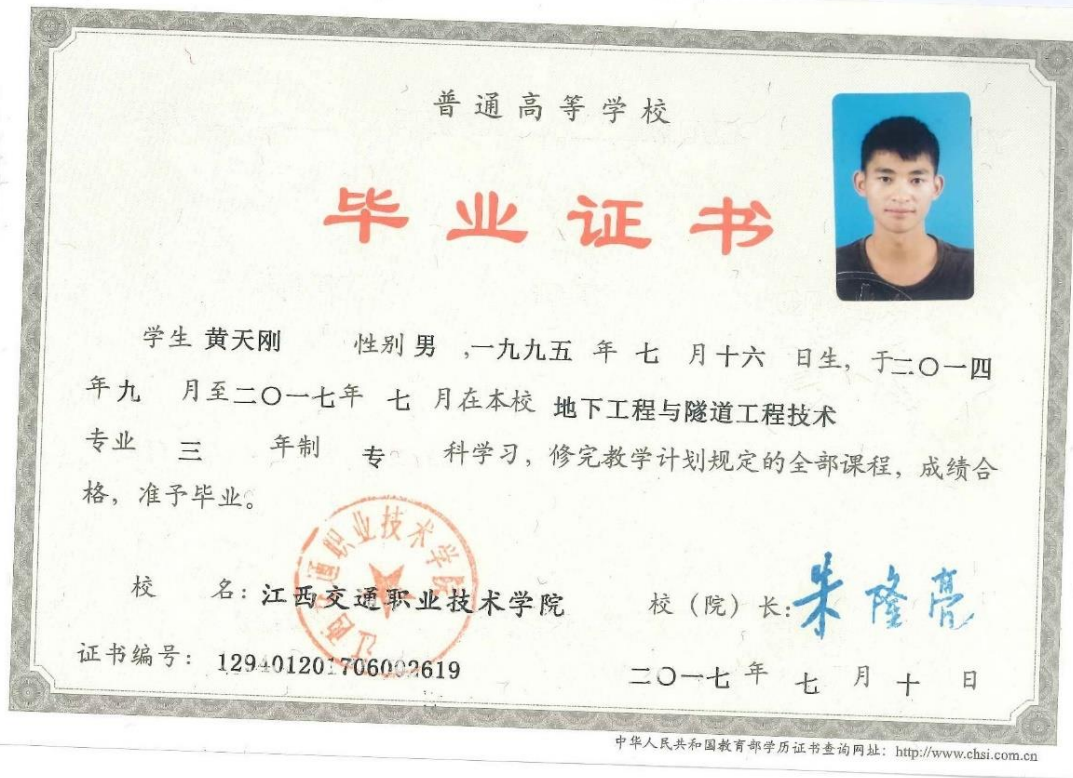 普通高等学校
毕业证书
学生 黄天刚 性别 男 ,一九九五 年 七 月 十六 日生, 于二〇一四
年九 月至二〇一七年 七 月在本校 地下工程与隧道工程技术
专业 三 年制 专 科学习, 修完教学计划规定的全部课程, 成绩合
格, 准予毕业。
江西交通职业技术学院
校 名: 江西交通职业技术学院 校(院)长: 朱隆亮
证书编号: 129401201706002619 二〇一七年 七 月 十 日
中华人民共和国教育部学历证书查询网址: http://www.chsi.com.cn